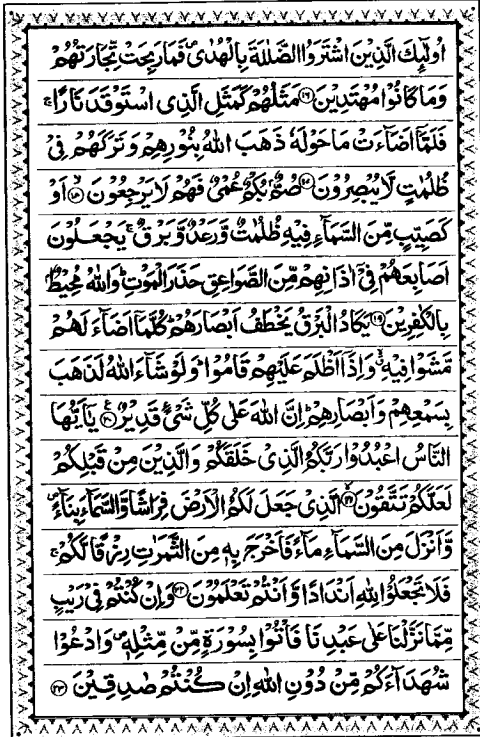 اُولٰٓئِكَ الَّذِيْنَ اشْتَرَوُا الضَّلٰلَةَ بِالْهُدٰى فَمَا رَبِحَتْ تِّجَارَتُهُمْ
وَمَا كَانُوْا مُهْتَدِيْنَ ﴿۱۶﴾ مَثَلُهُمْ كَمَثَلِ الَّذِى اسْتَوْقَدَ نَارًا ۚ
فَلَمَّاۤ اَضَآءَتْ مَا حَوْلَهٗ ذَهَبَ اللّٰهُ بِنُوْرِهِمْ وَتَرَكَهُمْ فِىْ
ظُلُمٰتٍ لَّا يُبْصِرُوْنَ ﴿۱۷﴾ صُمٌّۢ بُكْمٌ عُمْىٌ فَهُمْ لَا يَرْجِعُوْنَ ﴿۱۸﴾ اَوْ
كَصَيِّبٍ مِّنَ السَّمَآءِ فِيْهِ ظُلُمٰتٌ وَّرَعْدٌ وَّبَرْقٌ ۚ يَجْعَلُوْنَ
اَصَابِعَهُمْ فِىْۤ اٰذَانِهِمْ مِّنَ الصَّوَاعِقِ حَذَرَ الْمَوْتِ ؕ وَاللّٰهُ مُحِيْطٌۢ
بِالْكٰفِرِيْنَ ﴿۱۹﴾ يَكَادُ الْبَرْقُ يَخْطَفُ اَبْصَارَهُمْ ؕ كُلَّمَاۤ اَضَآءَ لَهُمْ
مَّشَوْا فِيْهِ ۙ وَاِذَاۤ اَظْلَمَ عَلَيْهِمْ قَامُوْا ؕ وَلَوْ شَآءَ اللّٰهُ لَذَهَبَ
بِسَمْعِهِمْ وَاَبْصَارِهِمْ ؕ اِنَّ اللّٰهَ عَلٰى كُلِّ شَىْءٍ قَدِيْرٌ ﴿۲۰﴾ يٰۤاَيُّهَا
النَّاسُ اعْبُدُوْا رَبَّكُمُ الَّذِىْ خَلَقَكُمْ وَالَّذِيْنَ مِنْ قَبْلِكُمْ
لَعَلَّكُمْ تَتَّقُوْنَ ﴿۲۱﴾ الَّذِىْ جَعَلَ لَكُمُ الْاَرْضَ فِرَاشًا وَّالسَّمَآءَ بِنَآءً
وَّاَنْزَلَ مِنَ السَّمَآءِ مَآءً فَاَخْرَجَ بِهٖ مِنَ الثَّمَرٰتِ رِزْقًا لَّكُمْ ۚ
فَلَا تَجْعَلُوْا لِلّٰهِ اَنْدَادًا وَّاَنْتُمْ تَعْلَمُوْنَ ﴿۲۲﴾ وَاِنْ كُنْتُمْ فِىْ رَيْبٍ
مِّمَّا نَزَّلْنَا عَلٰى عَبْدِنَا فَاْتُوْا بِسُوْرَةٍ مِّنْ مِّثْلِهٖ وَادْعُوْا
شُهَدَآءَكُمْ مِّنْ دُوْنِ اللّٰهِ اِنْ كُنْتُمْ صٰدِقِيْنَ ﴿۲۳﴾